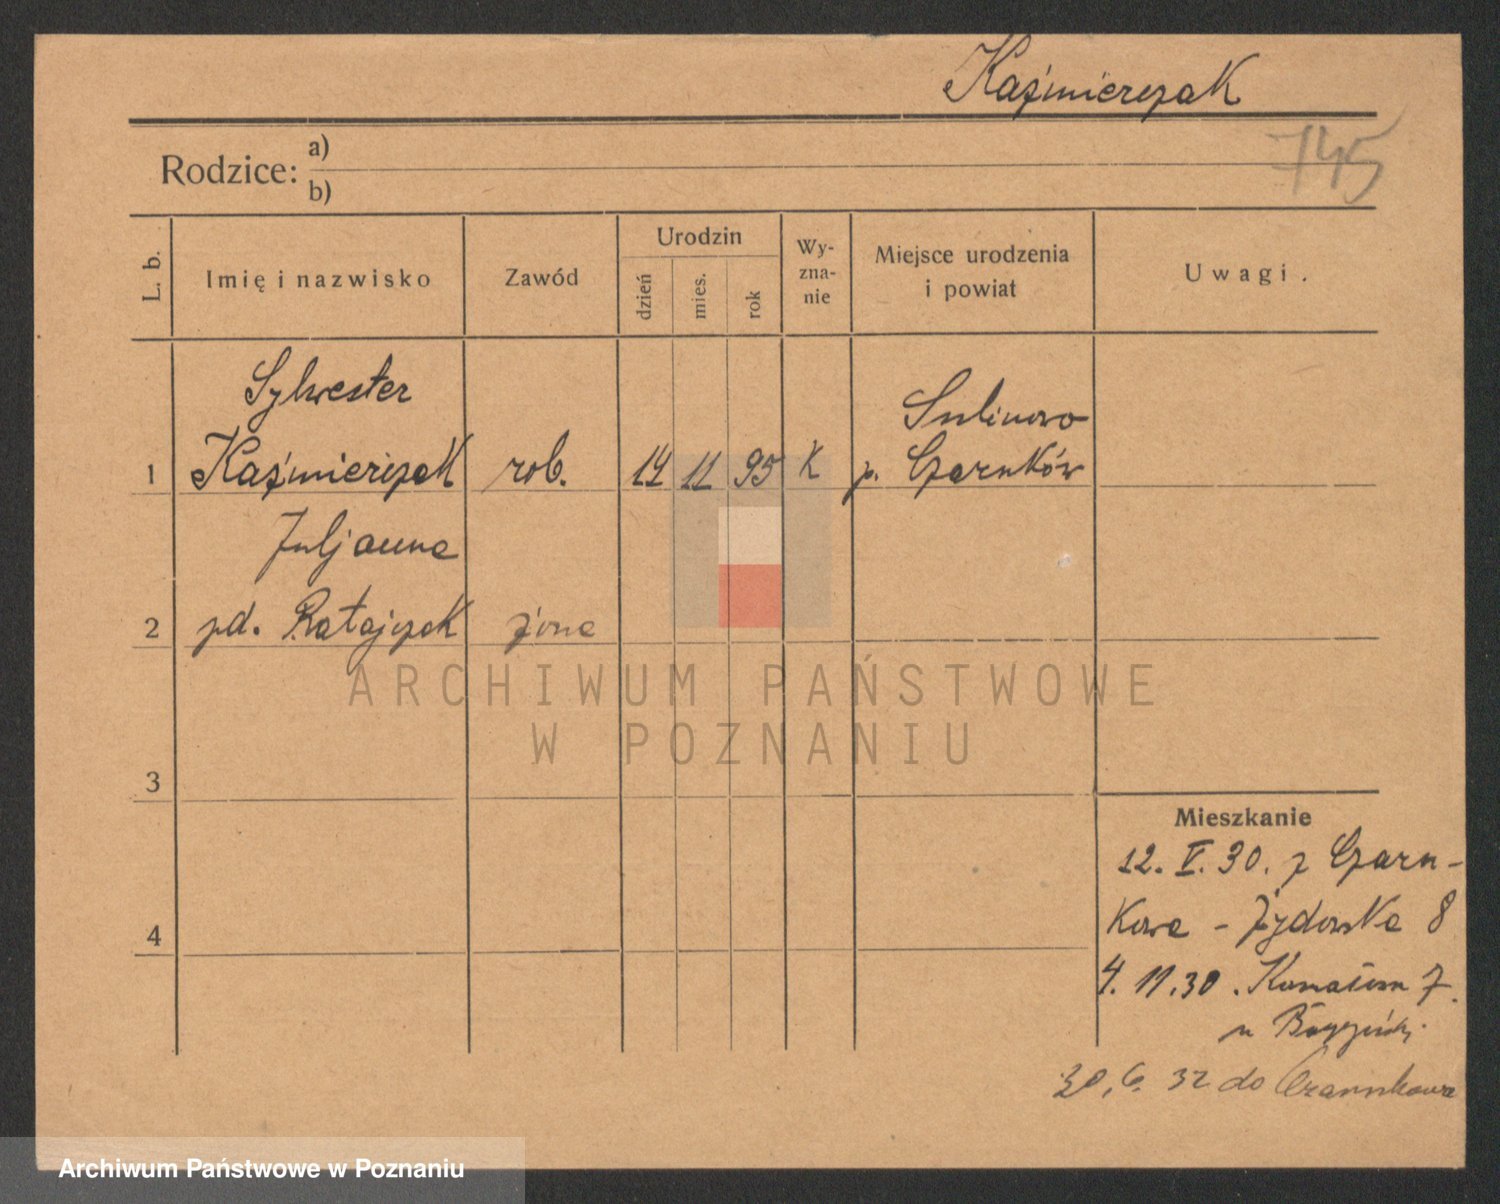 Kaźmierczak
745
Rodzice: a)
b)
L. b.
Imię i nazwisko
Zawód
Urodzin
dzień
mies.
rok
Wy-
zna-
nie
Miejsce urodzenia
i powiat
Uwagi.
Sylwester
Sulinowo
1 Kaźmierczak rob. 14 11 95 K p. Czarnków
Juljanna
2 zd. Ratajczak żona
ARCHIWUM PAŃSTWOWE
W POZNANIU
3
Mieszkanie
12. V. 30. z Czarn-
4
kowa - Żydowska 8
4. 11. 30. 7.
u
30. 6. 32 do Czarnkowa
Archiwum Państwowe w Poznaniu